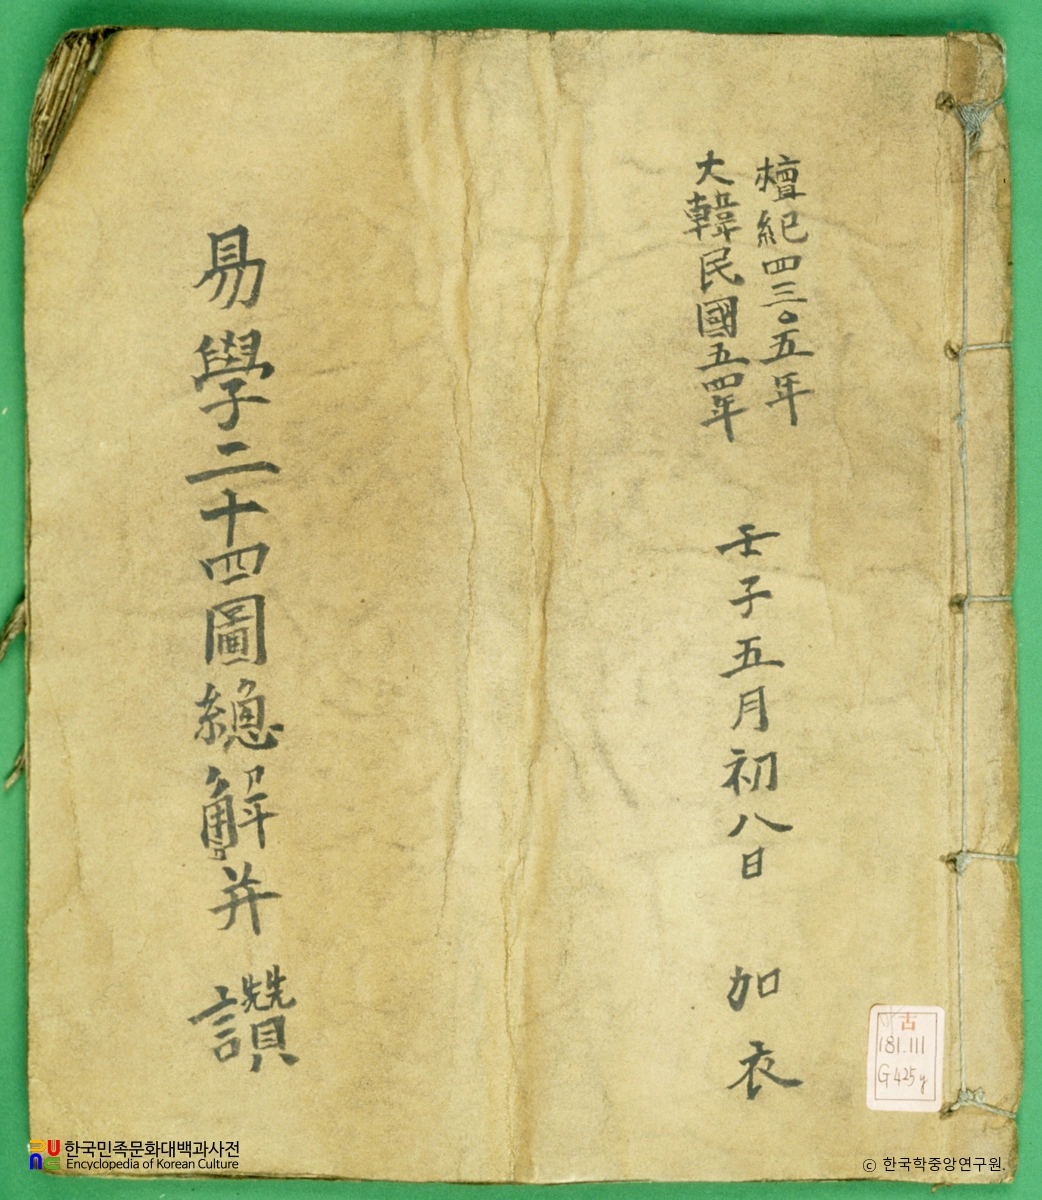 檀紀四三〇五年
大韓民國五四年
壬子五月初八日 加衣
易學二十四圖總解并讚
古
181.111
G425y
한국민족문화대백과사전
Encyclopedia of Korean Culture
ⓒ 한국학중앙연구원.